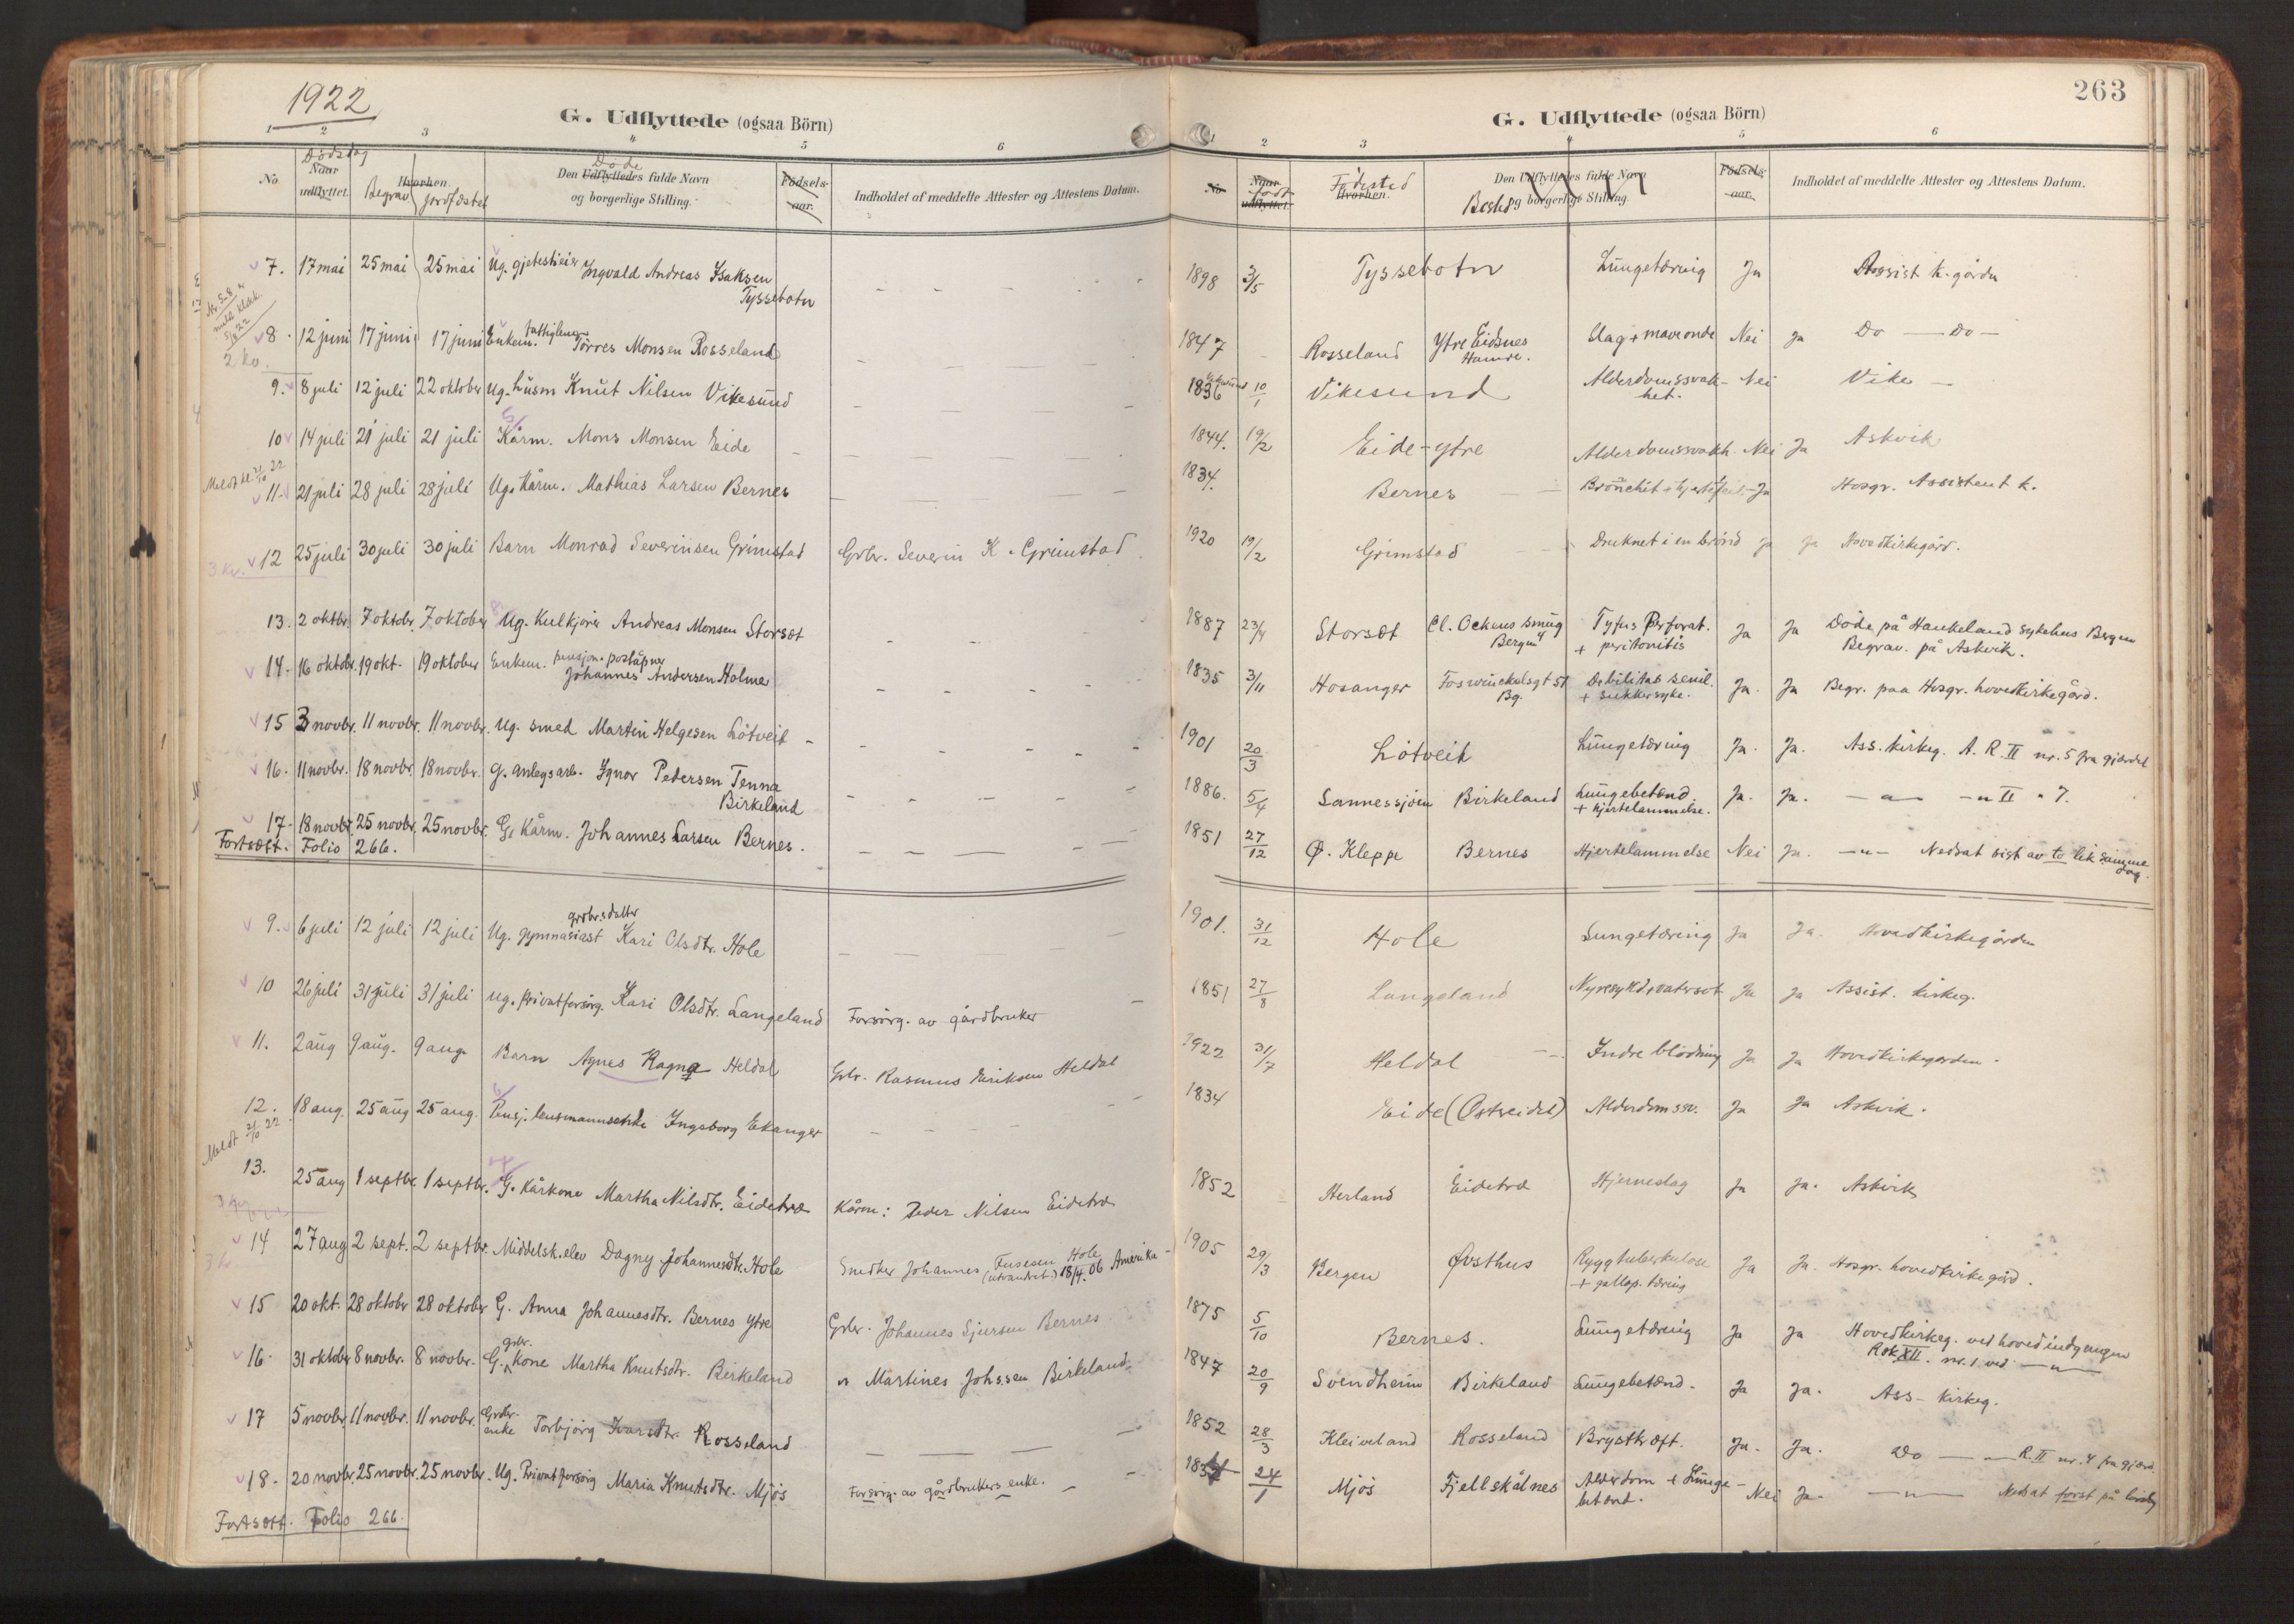 1922
G. Udflyttede (ogsaa Börn)
1 2 3 4 5 6
No
Dödsdag
Naar udflyttet.
Hvorhen.
Begrav jordfæstet
Döde
Den Udflyttedes fulde Navn
og borgerlige Stilling.
Födsels-
aar.
Indholdet af meddelte Attester og Attestens Datum.
7. 17 mai 25 mai 25 mai Ug. Ingvald Andreas Isaksen
Tyssebotn
8. 12 juni 17 juni 17 juni Enkem. Torres Monsen Rosseland
2 kv.
9. 8 juli 12 juli 22 oktober Ug. husm Knut Nilsen Vikesund
10 14 juli 21 juli 21 juli Kårm. Mons Monsen Eide
11. 21 juli 28 juli 28 juli Ug. Kårm. Mathias Larsen Bernes
12 25 juli 30 juli 30 juli Barn Monrad Severinsen Grimstad Grbr. Severin K. Grimstad
3 kv.
13. 2 oktbr. 7 oktobr. 7 oktober Ug. Kulkjörer Andreas Monsen Storset
14. 16 oktobr. 19 okt. 19 oktober Enkem. pensjon. poståpner
Johannes Andersen Holme
15 3 novbr. 11 novbr. 11 novbr. Ug. smed Martin Helgesen Lötveit
16. 11 novbr. 18 novbr. 18 novbr. G. anlegsarb. Ignor Pedersen Tenna
Birkeland
17. 18 novbr. 25 novbr. 25 novbr. G. Kårm. Johannes Larsen Bernes.
Fortsætt. Folio 266.
9. 6 juli 12 juli 12 juli Ug. gymnasiast grdbr.sdatter Kari Olsdtr. Hole
10 26 juli 31 juli 31 juli Ug. privatforsörg. Kari Olsdtr. Langeland Forsörg. av gårdbruker
11. 2 aug 9 aug. 9 aug. Barn Agnes Ragna Heldal Grbr. Rasmus Eriksen Heldal
12. 18 aug. 25 aug 25 aug. Pensj. lensmannsenke Ingeborg Ekanger
13. 25 aug 1 septbr. 1 septbr. G. Kårkone Martha Nilsdtr. Eidetræ Kårm: Peder Nilsen Eidetræ
14 27 aug 2 sept. 2 septbr. Middelsk.elev Dagny Johannesdtr. Hole Snedker Johannes Hole
(utvandret) 18/4. 06 Amerika
15 20 okt. 28 oktober 28 oktober G. Anna Johannesdtr. Bernes ytre Grbr. Johannes Sjursen Bernes
16. 31 oktober 8 novbr. 8 novbr. G. grbr. kone Martha Knutsdtr. Birkeland " Martines Johssen Birkeland
17 5 novbr. 11 novbr. 11 novbr. Grbr. enke Torbjörg Ivarsdtr. Rosseland
18. 20 novbr. 25 novbr. 25 novbr. Ug. Privatforsörg Maria Knutsdtr. Mjös Forsörg. av gårdbrukers enke.
Fortsætt. Folio 266.
263
G. Udflyttede (ogsaa Börn)
1 2 3 4 5 6
No
Naar udflyttet.
födt
Födested
Hvorhen.
Den Udflyttedes fulde Navn
og borgerlige Stilling.
Bosted
Födsels-
aar.
Indholdet af meddelte Attester og Attestens Datum.
1898 3/5 Tyssebotn Lungetæring Ja Assist k. gården
1847 Rosseland Ytre Eidsnes
Hamre. Slag + maveonde Nei Ja Do — Do —
1836 10/1 Vikesund Alderdomssvak-
het. Nei Vike
1844. 19/2 Eide-ytre Alderdomssvakh. Nei Ja Askvik
1834. Bernes Bronchit + hjertefeil Ja Hosgr. Assistent k.
1920 19/2 Grimstad Druknet i en brönd Ja Ja Hovedkirkegård.
1887 23/4 Storset Cl. Ockens smug 4
Bergen Tyfus Perforat.
+ peritonitis Ja Ja Döde på Haukeland sykehus Bergen
Begrav. på Askvik.
1835 3/11 Hosanger Foswinckelsgt 51
Bg. Debilitas senil.
+ sukkersyke. Ja. Ja Begr. paa Hosgr. hovedkirkegård.
1901 20/3 Lötveit Lungetæring Ja. Ja. Ass. kirkeg. A. R. II nr. 5 fra gjerdet
1886. 5/4 Sannessjöen Birkeland Lungebetænd.
+ hjertelammelse. Ja. Ja. — " — — " II " 7.
1851 27/12 Ø. Kleppe Bernes Hjertelammelse Nei Ja. — " — Nedsat sist av to lik samme
dag.
1901. 31/12 Hole Lungetæring Ja Ja. Hovedkirkegården
1851 27/8 Langeland Nyresykd. + vatersot Ja Ja Assist. kirkeg.
1922 31/7 Heldal Indre blödning Ja Ja Hovedkirkegården.
1834 Eide (Østreidet) Alderdomssv. Ja Ja Askvik.
1852 Herland Eidetræ Hjerneslag Ja Ja. Askvik
1905 29/3 Bergen Øvsthus Ryggtuberkulose
+ gallop. tæring Ja Ja. Hosgr. hovedkirkegård.
1875 5/10 Bernes. Lungetæring Ja Ja Hovedkirkeg. ved hovedindgangen
Rek XII. nr. 1 ved — " —
1847 20/9 Svendheim Birkeland Lungebetænd. Ja Ja. Ass. kirkeg.
1852 28/3 Kleiveland Rosseland Brystkræft. Ja. Ja. Do — " — R. II nr. 4 fra gjerd.
24/1 Mjös Fjellskålnes Alderdom + Lunge-
betænd. Nei Ja. — " — Nedsat först på